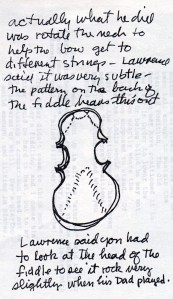 actually what he did
was rotate the neck to
help the bow get to
different strings - Lawrence
said it was very subtle -
the pattern on the back of
the fiddle bears this out
Lawrence said you had
to look at the head of the
fiddle to see it rock very
slightly when his Dad played.